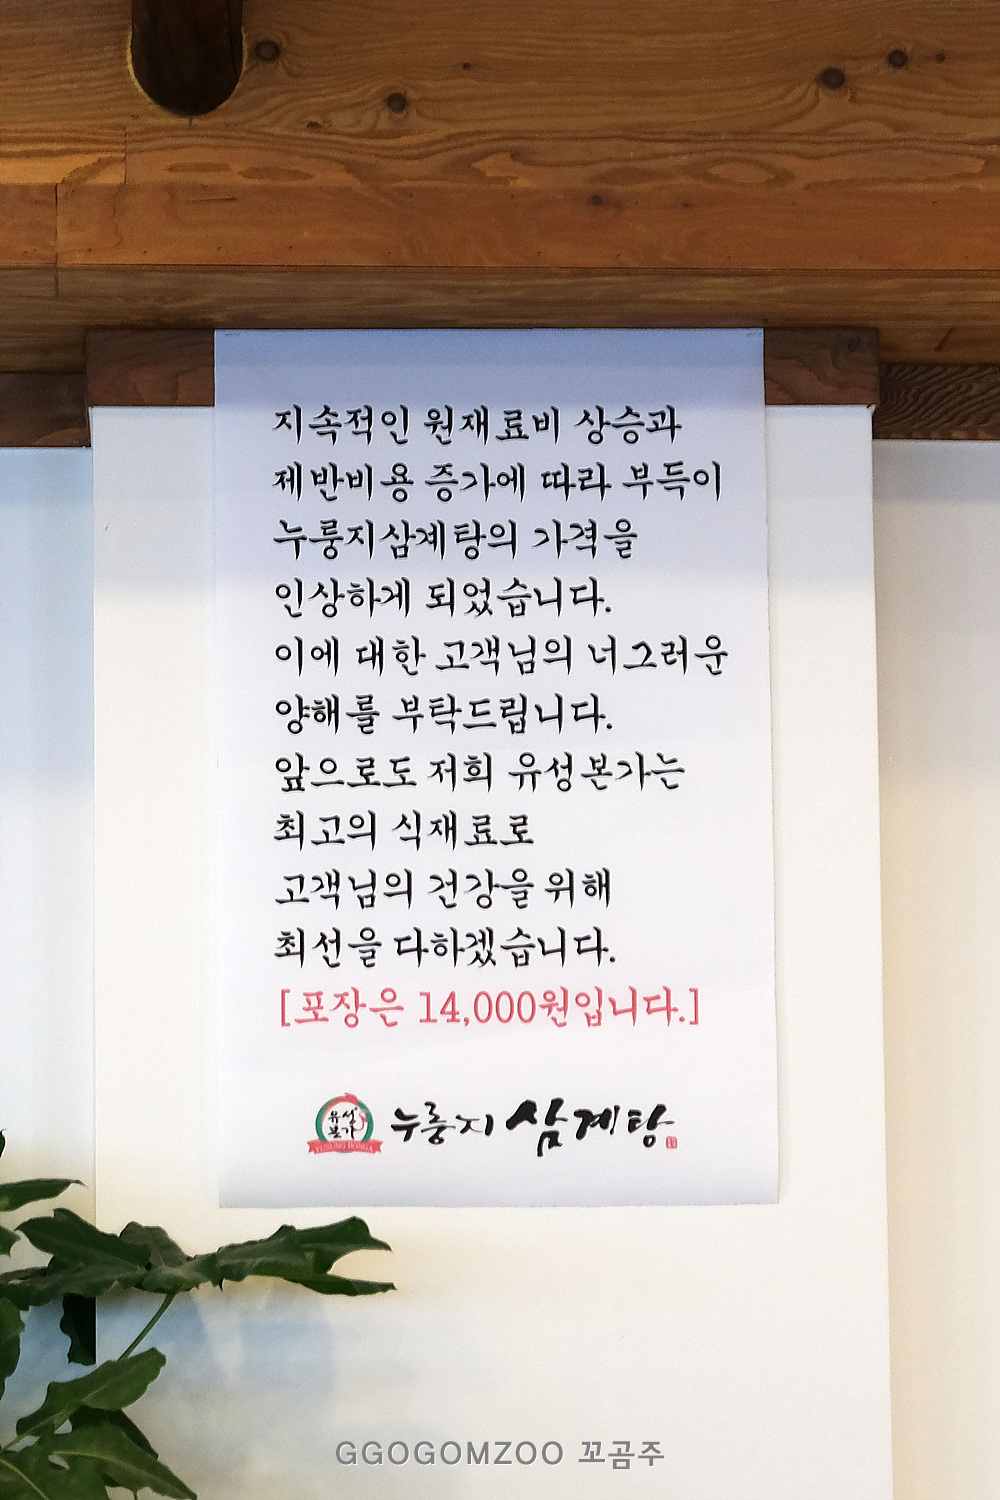 지속적인 원재료비 상승과
제반비용 증가에 따라 부득이
누룽지삼계탕의 가격을
인상하게 되었습니다.
이에 대한 고객님의 너그러운
양해를 부탁드립니다.
앞으로도 저희 유성본가는
최고의 식재료로
고객님의 건강을 위해
최선을 다하겠습니다.
[포장은 14,000원입니다.]
유성
본가
YUSUNG BONGA
누룽지 삼계탕
GGOGOMZOO 꼬곰주